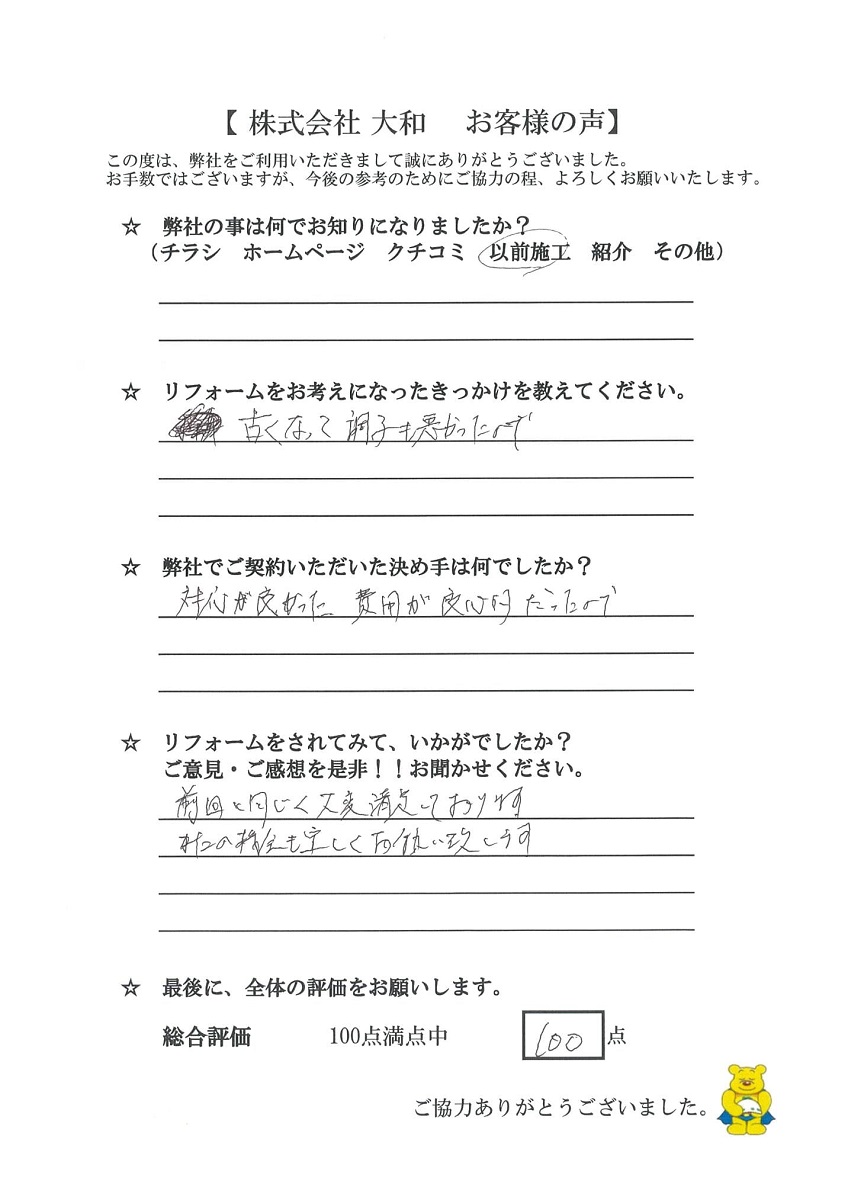 【 株式会社 大和　お客様の声】
この度は、弊社をご利用いただきまして誠にありがとうございました。
お手数ではございますが、今後の参考のためにご協力の程、よろしくお願いいたします。
☆　弊社の事は何でお知りになりましたか？
（チラシ　ホームページ　クチコミ　以前施工　紹介　その他）
☆　リフォームをお考えになったきっかけを教えてください。
古くなって 調子も悪かったので
☆　弊社でご契約いただいた決め手は何でしたか？
対応が良かった 費用が良心的だったので
☆　リフォームをされてみて、いかがでしたか？
ご意見・ご感想を是非！！お聞かせください。
前回と同じく大変満足しております
の機会も宜しくお願い致します
☆　最後に、全体の評価をお願いします。
総合評価　100点満点中　100 点
ご協力ありがとうございました。